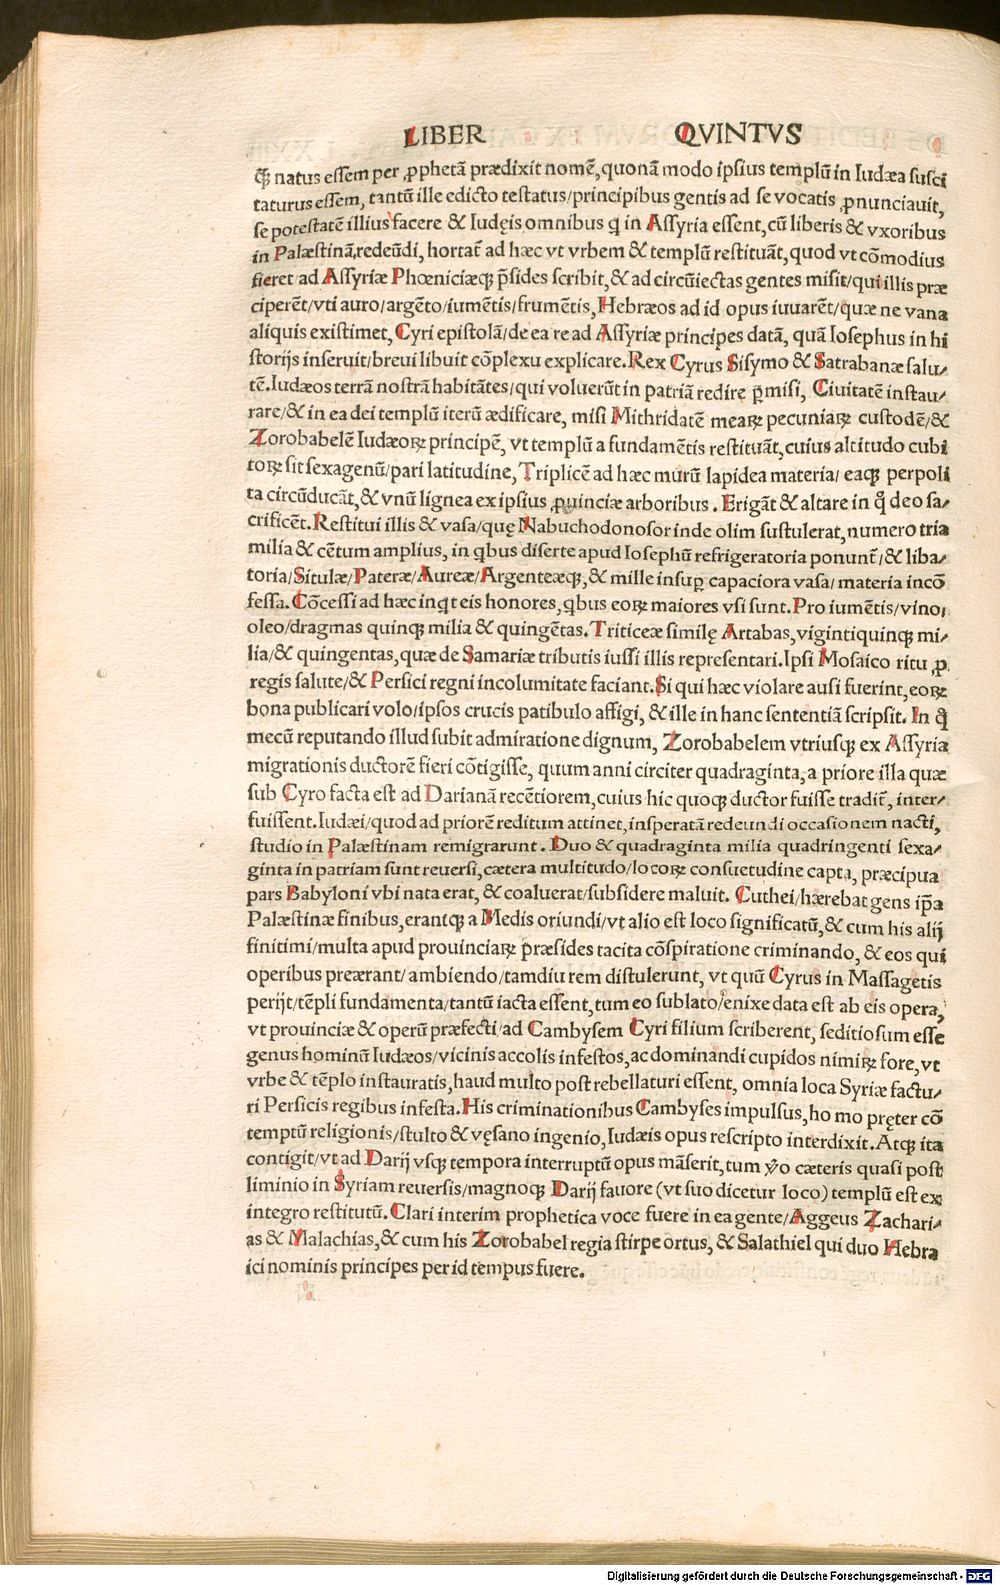 LIBER QVINTVS
ꝙ̃ natus essem per ꝓphetã prædixit nomẽ, quonã modo ipsius templũ in Iudæa susci
taturus essem, tantũ ille edicto testatus/principibus gentis ad se vocatis ꝓnunciauit,
se potestatẽ illius facere & Iudęis omnibus q̇ in Assyria essent, cũ liberis & vxoribus
in Palæstinã, redeũdi, hortat̃ ad hæc vt vrbem & templũ restituãt, quod vt cõmodius
fieret ad Assyriæ Phœniciæqꝫ p̃sides scribit, & ad circũiectas gentes misit/qui illis præ
ciperẽt/vti auro/argẽto/iumẽtis/frumẽtis, Hebræos ad id opus iuuarẽt/quæ ne vana
aliquis existimet, Cyri epistolã/de ea re ad Assyriæ principes datã, quã Iosephus in hi
storijs inseruit/breui libuit cõplexu explicare. Rex Cyrus Sisymo & Satrabanæ salu⸗
tẽ. Iudæos terrã nostrã habitãtes/qui voluerũt in patriã redire p̱misi, Ciuitatẽ instau⸗
rare/& in ea dei templũ iterũ ædificare, misi Mithridatẽ meaꝝ pecuniaꝝ custodẽ/&
Zorobabelẽ Iudæoꝝ principẽ, vt templũ a fundamẽtis restituãt, cuius altitudo cubi
toꝝ sit sexagenũ/pari latitudine, Triplicẽ ad hæc murũ lapidea materia/ eaqꝫ perpoli
ta circũducãt, & vnũ lignea ex ipsius ꝓuinciæ arboribus. Erigãt & altare in q̊ deo sa⸗
crificẽt. Restitui illis & vasa/quę Nabuchodonosor inde olim sustulerat, numero tria
milia & cẽtum amplius, in q̇bus diserte apud Iosephũ refrigeratoria ponunt̃/& liba⸗
toria/Situlæ/Pateræ/Aureæ/Argenteæqꝫ, & mille insup̱ capaciora vasa/ materia incõ
fessa. Cõcessi ad hæc inq̇t eis honores, q̇bus eoꝝ maiores vsi sunt. Pro iumẽtis/vino,
oleo/dragmas quinqꝫ milia & quingẽtas. Triticeæ similę Artabas, vigintiquinqꝫ mi⸗
lia/& quingentas, quæ de Samariæ tributis iussi illis representari. Ipsi Mosaico ritu ꝓ
regis salute/& Persici regni incolumitate faciant. Si qui hæc violare ausi fuerint, eoꝝ
bona publicari volo/ipsos crucis patibulo affigi, & ille in hanc sententiã scripsit. In q̊
mecũ reputando illud subit admiratione dignum, Zorobabelem vtriusqꝫ ex Assyria
migrationis ductorẽ fieri cõtigisse, quum anni circiter quadraginta, a priore illa quæ
sub Cyro facta est ad Darianã recẽtiorem, cuius hic quoqꝫ ductor fuisse tradit̃, inter⸗
fuissent. Iudæi/quod ad priorẽ reditum attinet, insperatã redeundi occasionem nacti,
studio in Palæstinam remigrarunt. Duo & quadraginta milia quadringenti sexa⸗
ginta in patriam sunt reuersi, cætera multitudo/locoꝝ consuetudine capta, præcipua
pars Babyloni vbi nata erat, & coaluerat/subsidere maluit. Cuthei/hærebat gens ip̃a
Palæstinæ finibus, erantqꝫ a Medis oriundi/vt alio est loco significatũ, & cum his alij
finitimi/multa apud prouinciaꝝ præsides tacita cõspiratione criminando, & eos qui
operibus preærant/ambiendo/tamdiu rem distulerunt, vt quũ Cyrus in Massagetis
perijt/tẽpli fundamenta/tantũ iacta essent, tum eo sublato/enixe data est ab eis opera,
vt prouinciæ & operũ præfecti/ad Cambysem Cyri filium scriberent, seditiosum esse
genus hominũ Iudæos/vicinis accolis infestos, ac dominandi cupidos nimiꝝ fore, vt
vrbe & tẽplo instauratis, haud multo post rebellaturi essent, omnia loca Syriæ factu⸗
ri Persicis regibus infesta. His criminationibus Cambyses impulsus, ho mo pręter cõ
temptũ religionis/stulto & vęsano ingenio, Iudæis opus rescripto interdixit. Atqꝫ ita
contigit/vt ad Darij vsqꝫ tempora interruptũ opus mãserit, tum ꝟo cæteris quasi post
liminio in Syriam reuersis/magnoqꝫ Darij fauore (vt suo dicetur loco) templũ est ex
integro restitutũ. Clari interim prophetica voce fuere in ea gente/Aggeus Zachari⸗
as & Malachias, & cum his Zorobabel regia stirpe ortus, & Salathiel qui duo Hebra
ici nominis principes per id tempus fuere.
Digitalisierung gefördert durch die Deutsche Forschungsgemeinschaft - DFG